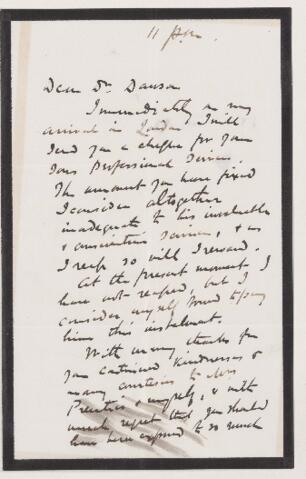 11 p.m.
Dear Dr. Dawson
Immediately on my
arrival in London I will
send you a cheque for your
Sons Professional Services.
The amount you have fixed
I consider altogether
inadequate to his invaluable
& conscientious services, & as
I reap so will I reward.
At the present moment I
have not reaped, but I
consider myself bound to pay
him this instalment.
With many thanks for
your continued kindnesses &
many courtesies to Mrs
Prentice & myself, & with
much regret that you should
have been exposed to so much